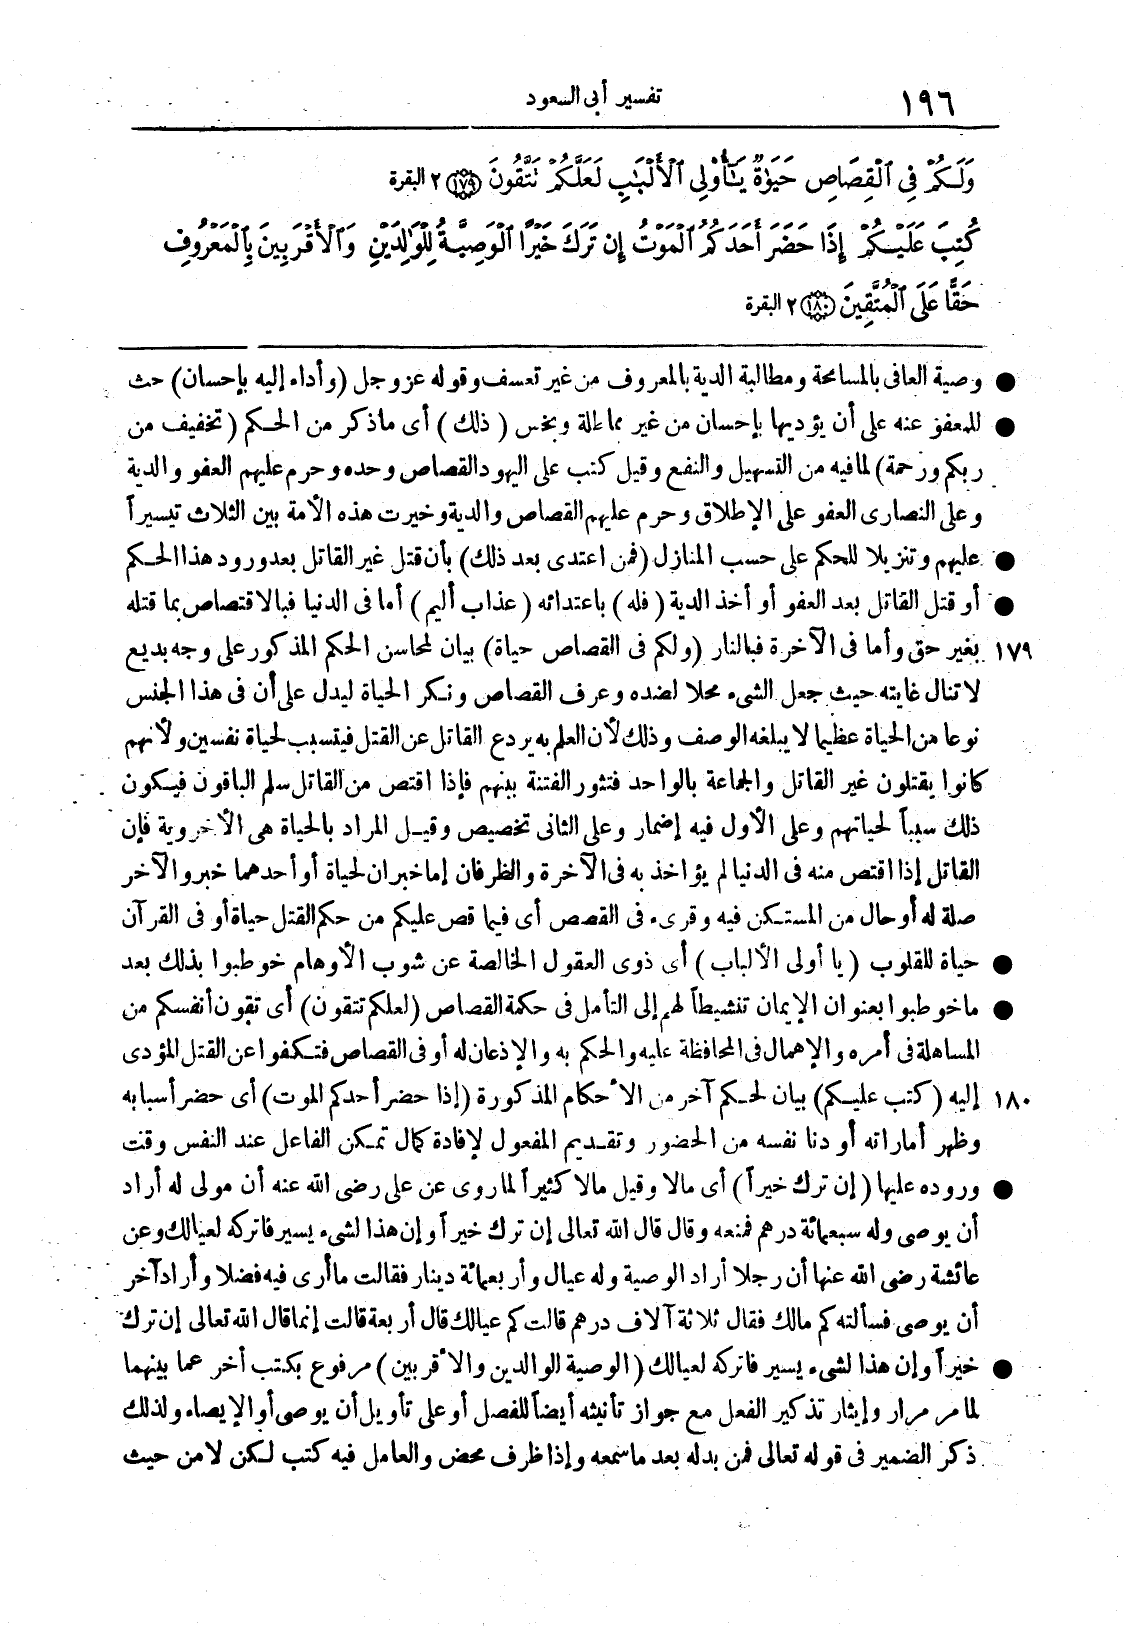 ١٩٦
تفسير أبى السعود
وَلَكُمْ فِي ٱلْقِصَاصِ حَيَوٰةٌ يَـٰٓأُوْلِي ٱلْأَلْبَـٰبِ لَعَلَّكُمْ تَتَّقُونَ ﴿١٧٩﴾ ٢ البقرة
كُتِبَ عَلَيْكُمْ إِذَا حَضَرَ أَحَدَكُمُ ٱلْمَوْتُ إِن تَرَكَ خَيْرًا ٱلْوَصِيَّةُ لِلْوَٰلِدَيْنِ وَٱلْأَقْرَبِينَ بِٱلْمَعْرُوفِ
حَقًّا عَلَى ٱلْمُتَّقِينَ ﴿١٨٠﴾ ٢ البقرة
● وصية العافى بالمسامحة ومطالبة الدية بالمعروف من غير تعسف وقوله عز وجل (وأداء إليه بإحسان) حث
● للمعفو عنه على أن يؤديها بإحسان من غير مماطلة وبخس (ذلك) أى ماذكر من الحكم (تخفيف من
ربكم ورحمة) لمافيه من التسهيل والنفع وقيل كتب على اليهود القصاص وحده وحرم عليهم العفو والدية
وعلى النصارى العفو على الإطلاق وحرم عليهم القصاص والدية وخيرت هذه الأمة بين الثلاث تيسيراً
● عليهم وتنزيلا للحكم على حسب المنازل (فمن اعتدى بعد ذلك) بأن قتل غير القاتل بعد ورود هذا الحكم
● أو قتل القاتل بعد العفو أو أخذ الدية (فله) باعتدائه (عذاب أليم) أما فى الدنيا فبالاقتصاص بما قتله
١٧٩ بغير حق وأما فى الآخرة فبالنار (ولكم فى القصاص حياة) بيان لمحاسن الحكم المذكور على وجه بديع
لا تنال غايته حيث جعل الشىء محلا لضده وعرف القصاص ونكر الحياة ليدل على أن فى هذا الجنس
نوعا من الحياة عظيما لا يبلغه الوصف وذلك لأن العلم به يردع القاتل عن القتل فيتسبب لحياة نفسين ولأنهم
كانوا يقتلون غير القاتل والجماعة بالواحد فتثور الفتنة بينهم فإذا اقتص من القاتل سلم الباقون فيكون
ذلك سبباً لحياتهم وعلى الأول فيه إضمار وعلى الثانى تخصيص وقيل المراد بالحياة هى الأخروية فإن
القاتل إذا اقتص منه فى الدنيا لم يؤاخذ به فى الآخرة والظرفان إما خبران لحياة أو أحدهما خبر والآخر
صلة له أو حال من المستكن فيه وقرىء فى القصص أى فيما قص عليكم من حكم القتل حياة أو فى القرآن
● حياة للقلوب (يا أولى الألباب) أى ذوى العقول الخالصة عن شوب الأوهام خوطبوا بذلك بعد
● ماخوطبوا بعنوان الإيمان تنشيطاً لهم إلى التأمل فى حكمة القصاص (لعلكم تتقون) أى تقون أنفسكم من
المساهلة فى أمره والإهمال فى المحافظة عليه والحكم به والإذعان له أو فى القصاص فتكفوا عن القتل المؤدى
١٨٠ إليه (كتب عليكم) بيان لحكم آخر من الأحكام المذكورة (إذا حضر أحدكم الموت) أى حضر أسبابه
وظهر أماراته أو دنا نفسه من الحضور وتقديم المفعول لإفادة كمال تمكن الفاعل عند النفس وقت
● وروده عليها (إن ترك خيراً) أى مالا وقيل مالا كثيراً لما روى عن على رضى الله عنه أن مولى له أراد
أن يوصى وله سبعمائة درهم فمنعه وقال قال الله تعالى إن ترك خيراً وإن هذا لشىء يسير فاتركه لعيالك وعن
عائشة رضى الله عنها أن رجلا أراد الوصية وله عيال وأربعمائة دينار فقالت ما أرى فيه فضلا وأراد آخر
أن يوصى فسألته كم مالك فقال ثلاثة آلاف درهم قالت كم عيالك قال أربعة قالت إنما قال الله تعالى إن ترك
● خيراً وإن هذا لشىء يسير فاتركه لعيالك (الوصية للوالدين والأقربين) مرفوع بكتب أخر عما بينهما
لما مر مرار وإيثار تذكير الفعل مع جواز تأنيثه أيضاً للفصل أو على تأويل أن يوصى أو الإيصاء ولذلك
ذكر الضمير فى قوله تعالى فمن بدله بعد ماسمعه وإذا ظرف محض والعامل فيه كتب لكن لا من حيث